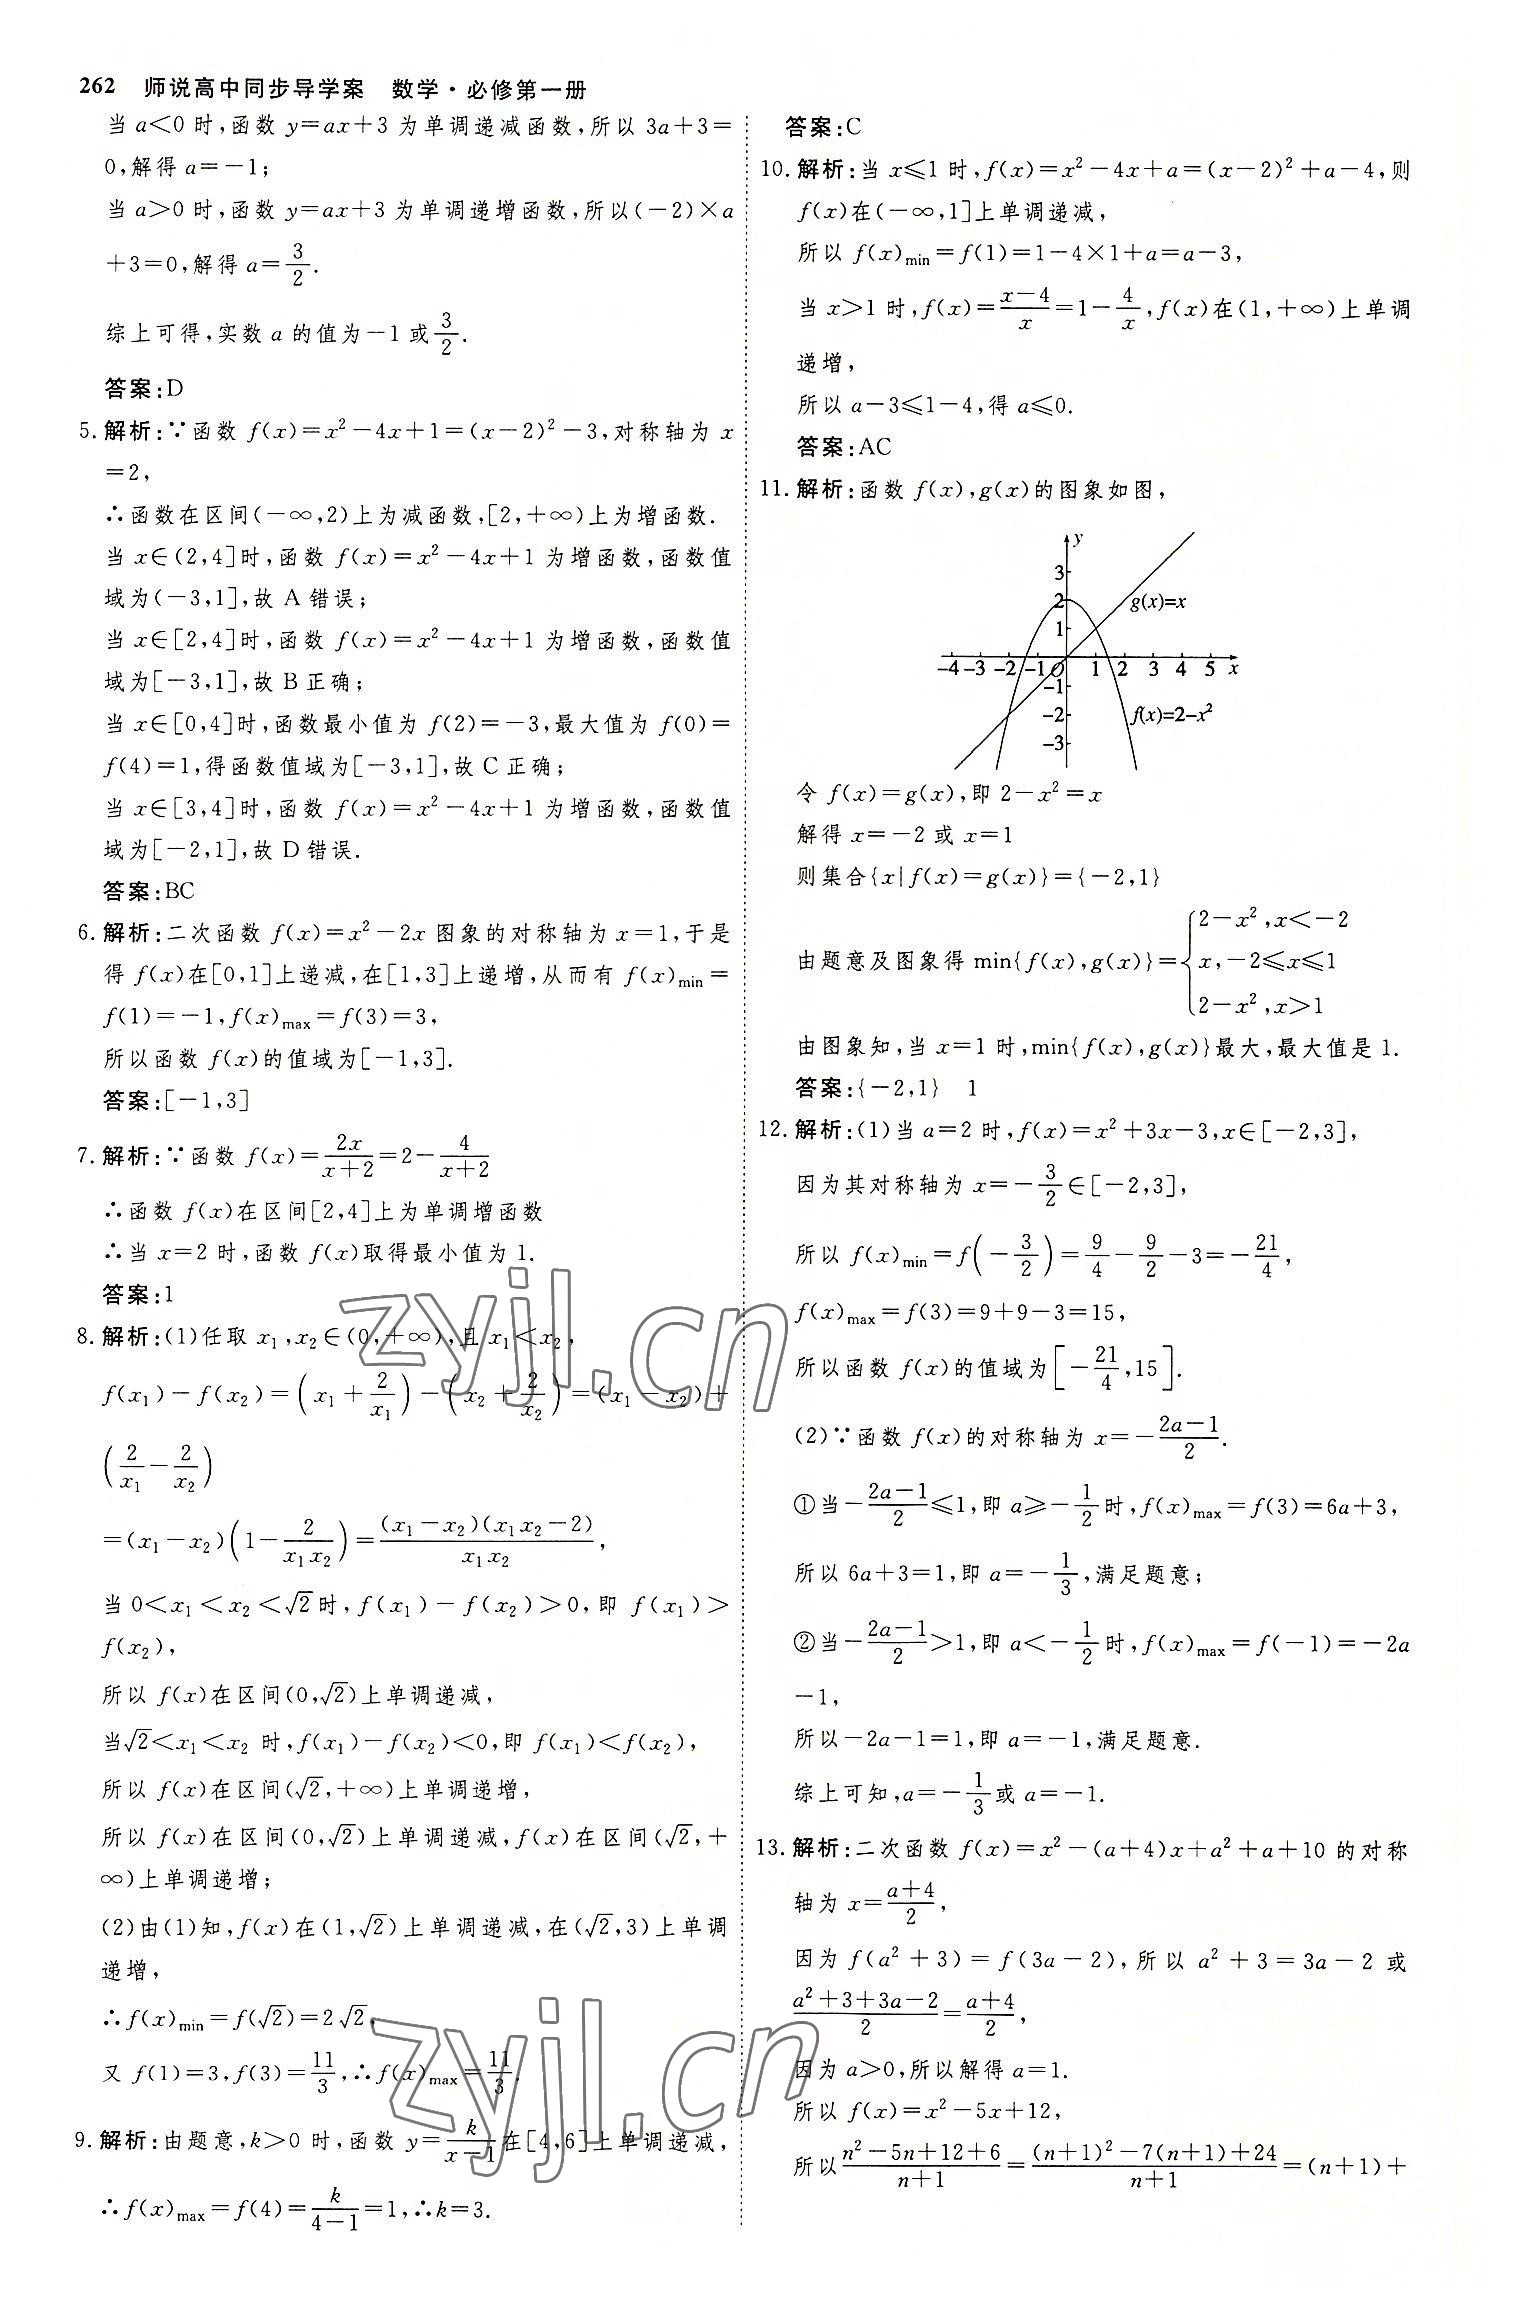 262 师说高中同步导学案 数学·必修第一册
当 a<0 时,函数 y=ax+3 为单调递减函数,所以 3a+3=
0,解得 a=-1;
当 a>0 时,函数 y=ax+3 为单调递增函数,所以(-2)×a
+3=0,解得 a=3/2.
综上可得,实数 a 的值为-1 或3/2.
答案:D
5.解析:∵函数 f(x)=x²-4x+1=(x-2)²-3,对称轴为 x
=2,
∴函数在区间(-∞,2)上为减函数,[2,+∞)上为增函数.
当 x∈(2,4]时,函数 f(x)=x²-4x+1 为增函数,函数值
域为(-3,1],故 A 错误;
当 x∈[2,4]时,函数 f(x)=x²-4x+1 为增函数,函数值
域为[-3,1],故 B 正确;
当 x∈[0,4]时,函数最小值为 f(2)=-3,最大值为 f(0)=
f(4)=1,得函数值域为[-3,1],故 C 正确;
当 x∈[3,4]时,函数 f(x)=x²-4x+1 为增函数,函数值
域为[-2,1],故 D 错误.
答案:BC
6.解析:二次函数 f(x)=x²-2x 图象的对称轴为 x=1,于是
得 f(x)在[0,1]上递减,在[1,3]上递增,从而有 f(x)min=
f(1)=-1,f(x)max=f(3)=3,
所以函数 f(x)的值域为[-1,3].
答案:[-1,3]
7.解析:∵函数 f(x)=2x/(x+2)=2-4/(x+2)
∴函数 f(x)在区间[2,4]上为单调增函数
∴当 x=2 时,函数 f(x)取得最小值为 1.
答案:1
8.解析:(1)任取 x₁,x₂∈(0,+∞),且 x₁<x₂,
f(x₁)-f(x₂)=(x₁+2/x₁)-(x₂+2/x₂)=(x₁-x₂)+
(2/x₁-2/x₂)
=(x₁-x₂)(1-2/(x₁x₂))=(x₁-x₂)(x₁x₂-2)/(x₁x₂),
当 0<x₁<x₂<√2时,f(x₁)-f(x₂)>0,即 f(x₁)>
f(x₂),
所以 f(x)在区间(0,√2)上单调递减,
当√2<x₁<x₂ 时,f(x₁)-f(x₂)<0,即 f(x₁)<f(x₂),
所以 f(x)在区间(√2,+∞)上单调递增,
所以 f(x)在区间(0,√2)上单调递减,f(x)在区间(√2,+
∞)上单调递增;
(2)由(1)知,f(x)在(1,√2)上单调递减,在(√2,3)上单调
递增,
∴f(x)min=f(√2)=2√2,
又 f(1)=3,f(3)=11/3,∴f(x)max=11/3.
9.解析:由题意,k>0 时,函数 y=k/(x-1)在[4,6]上单调递减,
∴f(x)max=f(4)=k/(4-1)=1,∴k=3.
答案:C
10.解析:当 x≤1 时,f(x)=x²-4x+a=(x-2)²+a-4,则
f(x)在(-∞,1]上单调递减,
所以 f(x)min=f(1)=1-4×1+a=a-3,
当 x>1 时,f(x)=(x-4)/x=1-4/x,f(x)在(1,+∞)上单调
递增,
所以 a-3≤1-4,得 a≤0.
答案:AC
11.解析:函数 f(x),g(x)的图象如图,
y
3
2
g(x)=x
1
-4 -3 -2 -1 O 1 2 3 4 5 x
-1
-2
f(x)=2-x²
-3
令 f(x)=g(x),即 2-x²=x
解得 x=-2 或 x=1
则集合{x|f(x)=g(x)}={-2,1}
由题意及图象得 min{f(x),g(x)}={2-x²,x<-2
x,-2≤x≤1
2-x²,x>1
由图象知,当 x=1 时,min{f(x),g(x)}最大,最大值是 1.
答案:{-2,1} 1
12.解析:(1)当 a=2 时,f(x)=x²+3x-3,x∈[-2,3],
因为其对称轴为 x=-3/2∈[-2,3],
所以 f(x)min=f(-3/2)=9/4-9/2-3=-21/4,
f(x)max=f(3)=9+9-3=15,
所以函数 f(x)的值域为[-21/4,15].
(2)∵函数 f(x)的对称轴为 x=-(2a-1)/2.
①当-(2a-1)/2≤1,即 a≥-1/2时,f(x)max=f(3)=6a+3,
所以 6a+3=1,即 a=-1/3,满足题意;
②当-(2a-1)/2>1,即 a<-1/2时,f(x)max=f(-1)=-2a
-1,
所以-2a-1=1,即 a=-1,满足题意.
综上可知,a=-1/3或 a=-1.
13.解析:二次函数 f(x)=x²-(a+4)x+a²+a+10 的对称
轴为 x=(a+4)/2,
因为 f(a²+3)=f(3a-2),所以 a²+3=3a-2 或
(a²+3+3a-2)/2=(a+4)/2,
因为 a>0,所以解得 a=1.
所以 f(x)=x²-5x+12,
所以(n²-5n+12+6)/(n+1)=((n+1)²-7(n+1)+24)/(n+1)=(n+1)+
zyjl.cn
zyjl.cn